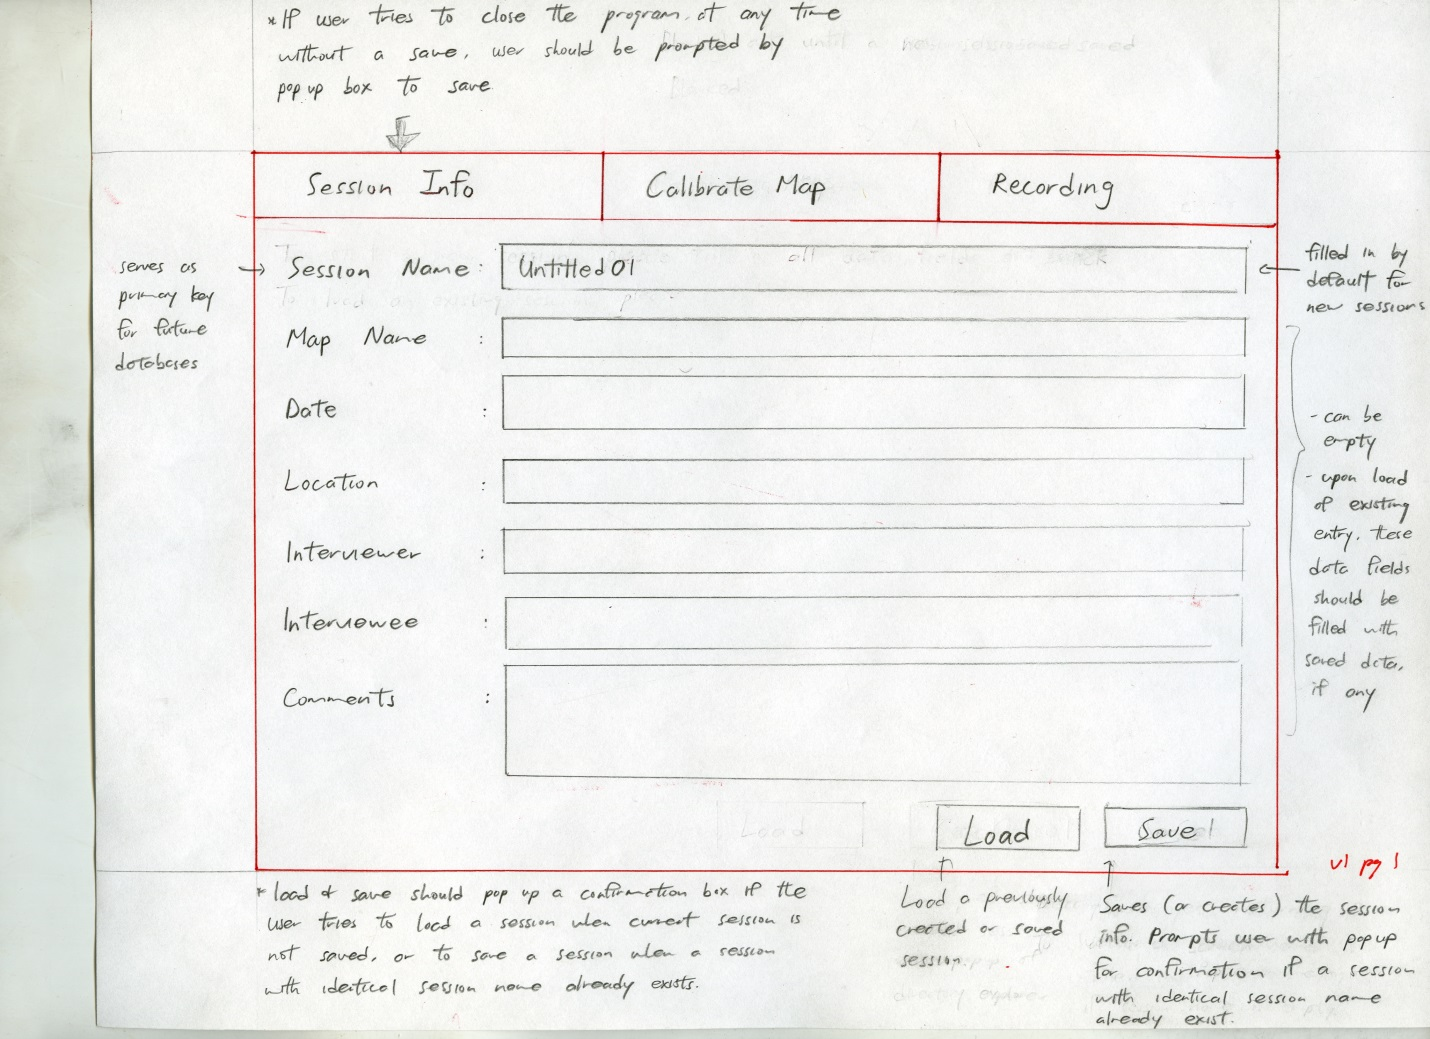 *If user tries to close the program at any time
without a save, user should be prompted by
pop up box to save
Session Info
Calibrate Map
Recording
serves as
primary key
for future
databases
Session Name:
Untitled01
filled in by
default for
new sessions
Map Name :
Date :
Location :
Interviewer :
Interviewee :
Comments :
- can be
empty
- upon load
of existing
entry, these
data fields
should be
filled with
saved data,
if any
Load
Save
v1 pg 1
* load & save should pop up a confirmation box if the
user tries to load a session when current session is
not saved, or to save a session when a session
with identical session name already exists.
Load a previously
created or saved
session
Saves (or creates) the session
info. Prompts user with popup
for confirmation if a session
with identical session name
already exist.